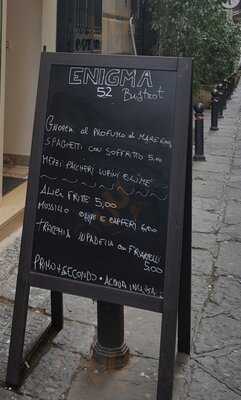 ENIGMA
52 Bistrot
GNOCCHI AL PROFUMO di MARE
SPAGHETTI CON SOFFRITTO 5,00
MEZZI PACCHERI LUPINI E LIME
ALICI FRITTE 5,00
MUSSILLO OLIVE E CAPPERI 6,00
TRACCHIA IN PADELLA CON FRIARIELLI
5,00
PRIMO + SECONDO + ACQUA INCLUSA